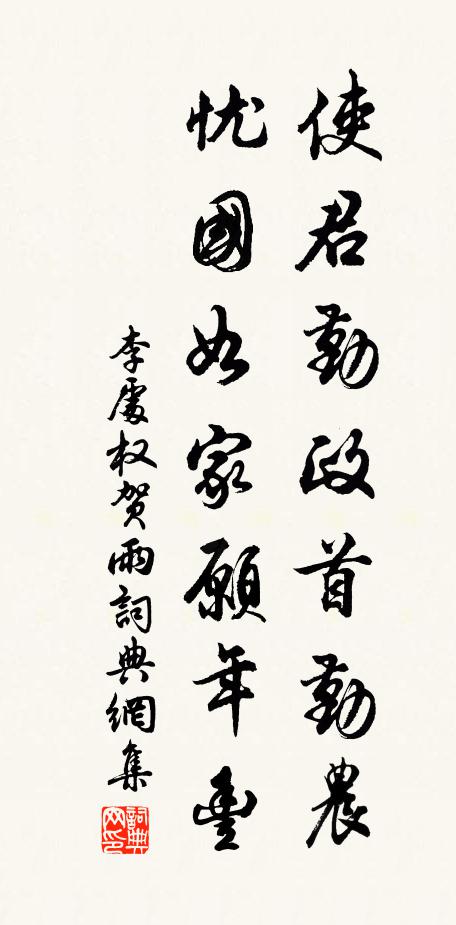 使君勤政首勤農
忧國如家願年豐
李處权贺雨詞典網集
詞典网印